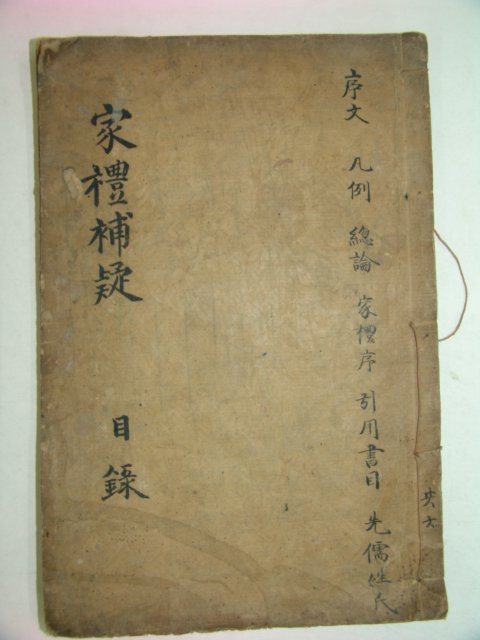 共六
序文 凡例 總論 家禮序 引用書目 先儒姓氏
家禮補疑 目錄